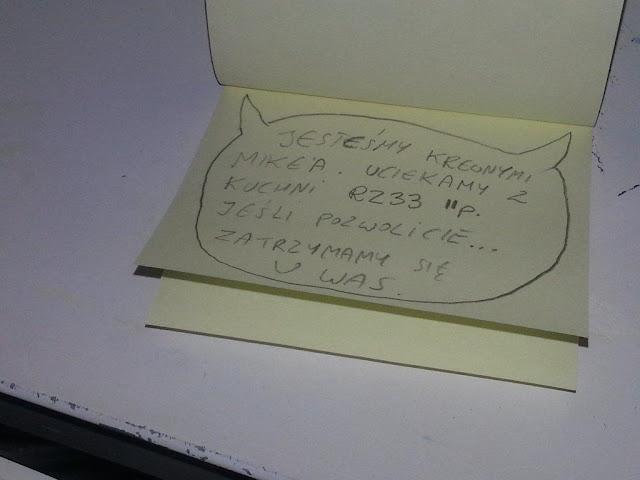 JESTEŚMY KREONYMI
MIKE'A. UCIEKAMY Z
KUCHNI RZ33 "P.
JEŚLI POZWOLICIE...
ZATRZYMAMY SIĘ
U WAS.